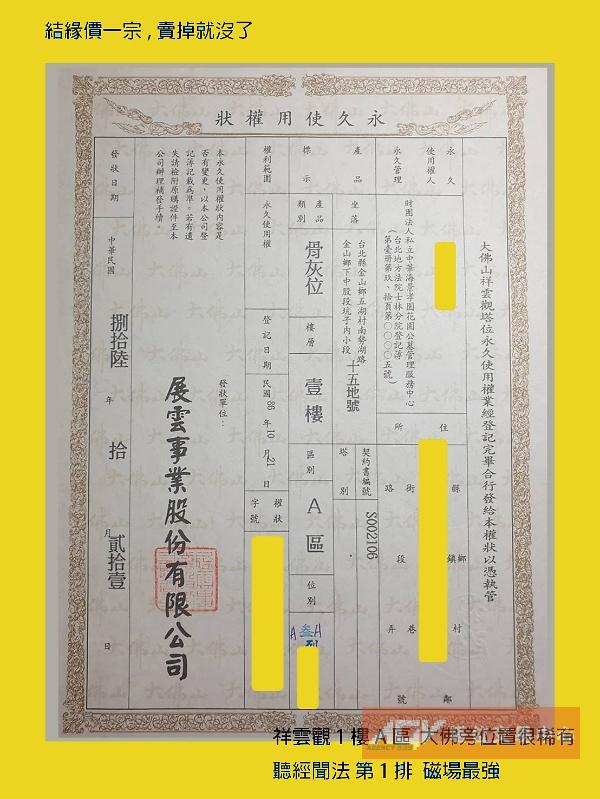 結緣價一宗，賣掉就沒了
永久使用權狀
大佛山祥雲觀塔位永久使用權業經登記完畢合行發給本權狀以憑執管
永久
使用權人
住
所
縣
鄉
鎮
村
鄰
路
街
段
巷
弄
號
永久管理
財團法人私立中華海景孝園花園公墓管理服務中心
（台北地方法院士林分院登記簿
第壹册第玖、拾頁第〇〇〇五號）
契約書編號
S002106
產品
坐落
台北縣金山鄉五湖村南勢湖路
金山鄉下中股段坑子內小段
十五地號
塔別
標示
產品
類別
骨灰位
樓層
壹樓
區別
A區
位別
A叁A
列
權利範圍
永久使用權
登記日期
民國86年10月21日
權狀
字號
本永久使用權狀內容是
否有變更，以本公司登
記簿記載為準。若有遺
失請檢附原購證件至本
公司辦理補發手續。
發狀單位：
展雲事業股份有限公司
發狀日期
中華民國
捌拾陸
年
拾
月
貳拾壹
日
祥雲觀 1 樓 A 區 大佛旁位置很稀有
聽經聞法 第 1 排 磁場最強